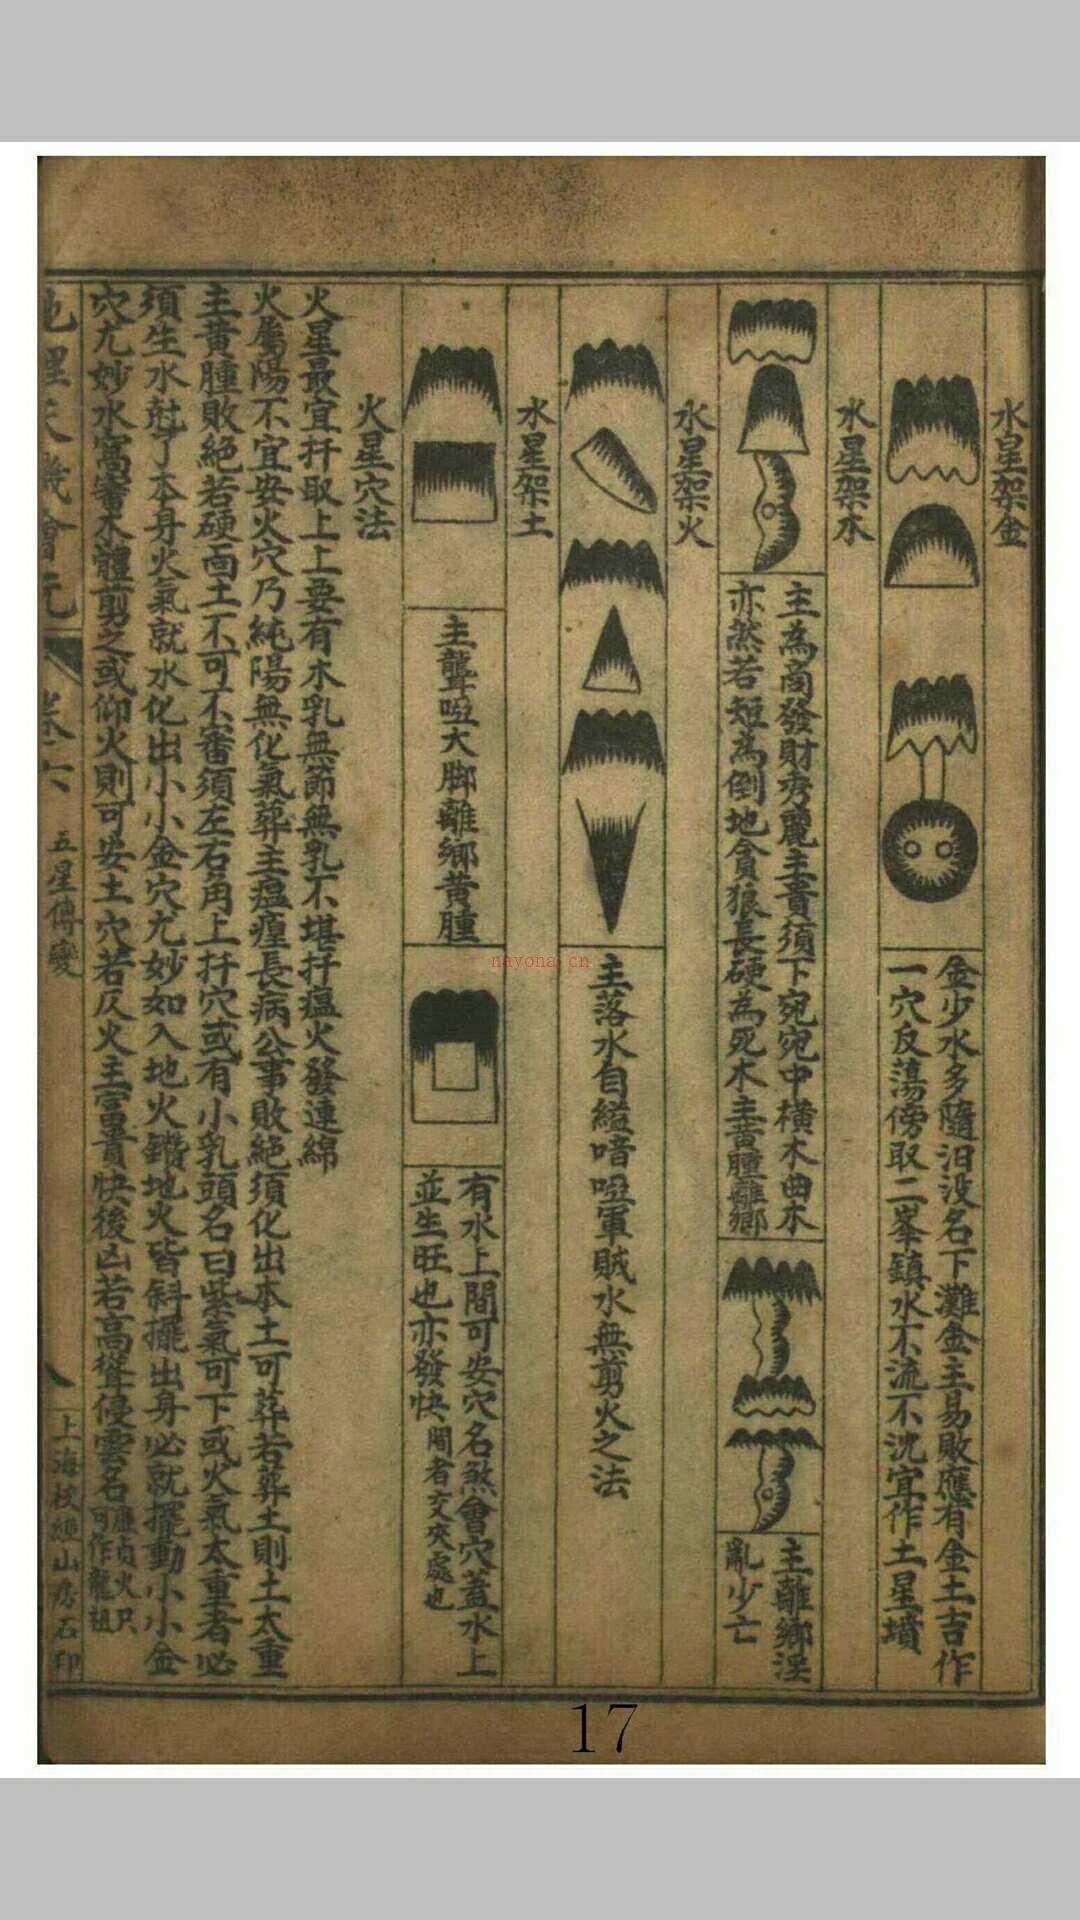 水星架金
金少水多隨汨没名下灘金主易敗應有金土吉作
一穴反蕩傍取二峯鎮水不流不沈宜作土星墳
水星架木
主為商發財秀麗主貴須下宛宛中橫木曲木
亦然若短為倒地貪狼長硬為死木主黃腫離鄉
主離鄉淫
亂少亡
水星架火
主落水自縊喑啞軍賊水無剪火之法
水星架土
主聾啞大脚離鄉黃腫
有水上閒可安穴名煞會穴蓋水上
並生旺也亦發快閒者交夾處也
火星穴法
火星最宜扦取上上要有木乳無節無乳不堪扦瘟火發連綿
火屬陽不宜安火穴乃純陽無化氣葬主瘟㾮長病公事敗絕須化出本土可葬若葬土則土太重
主黃腫敗絕若硬面土不可不審須左右角上扦穴或有小乳頭名曰紫氣可下或火氣太重者必
須生水尅了本身火氣就水化出小小金穴尤妙如入地火鑽地火皆斜擺出身必就擺動小小金
穴尤妙水窩審木體剪之或仰火則可安土穴若仄火主富貴快後凶若高聳侵雲名廉貞火只
可作龍祖
地理天機會元
卷六
五星傳變
上海校經山房石印
nayona.cn
17